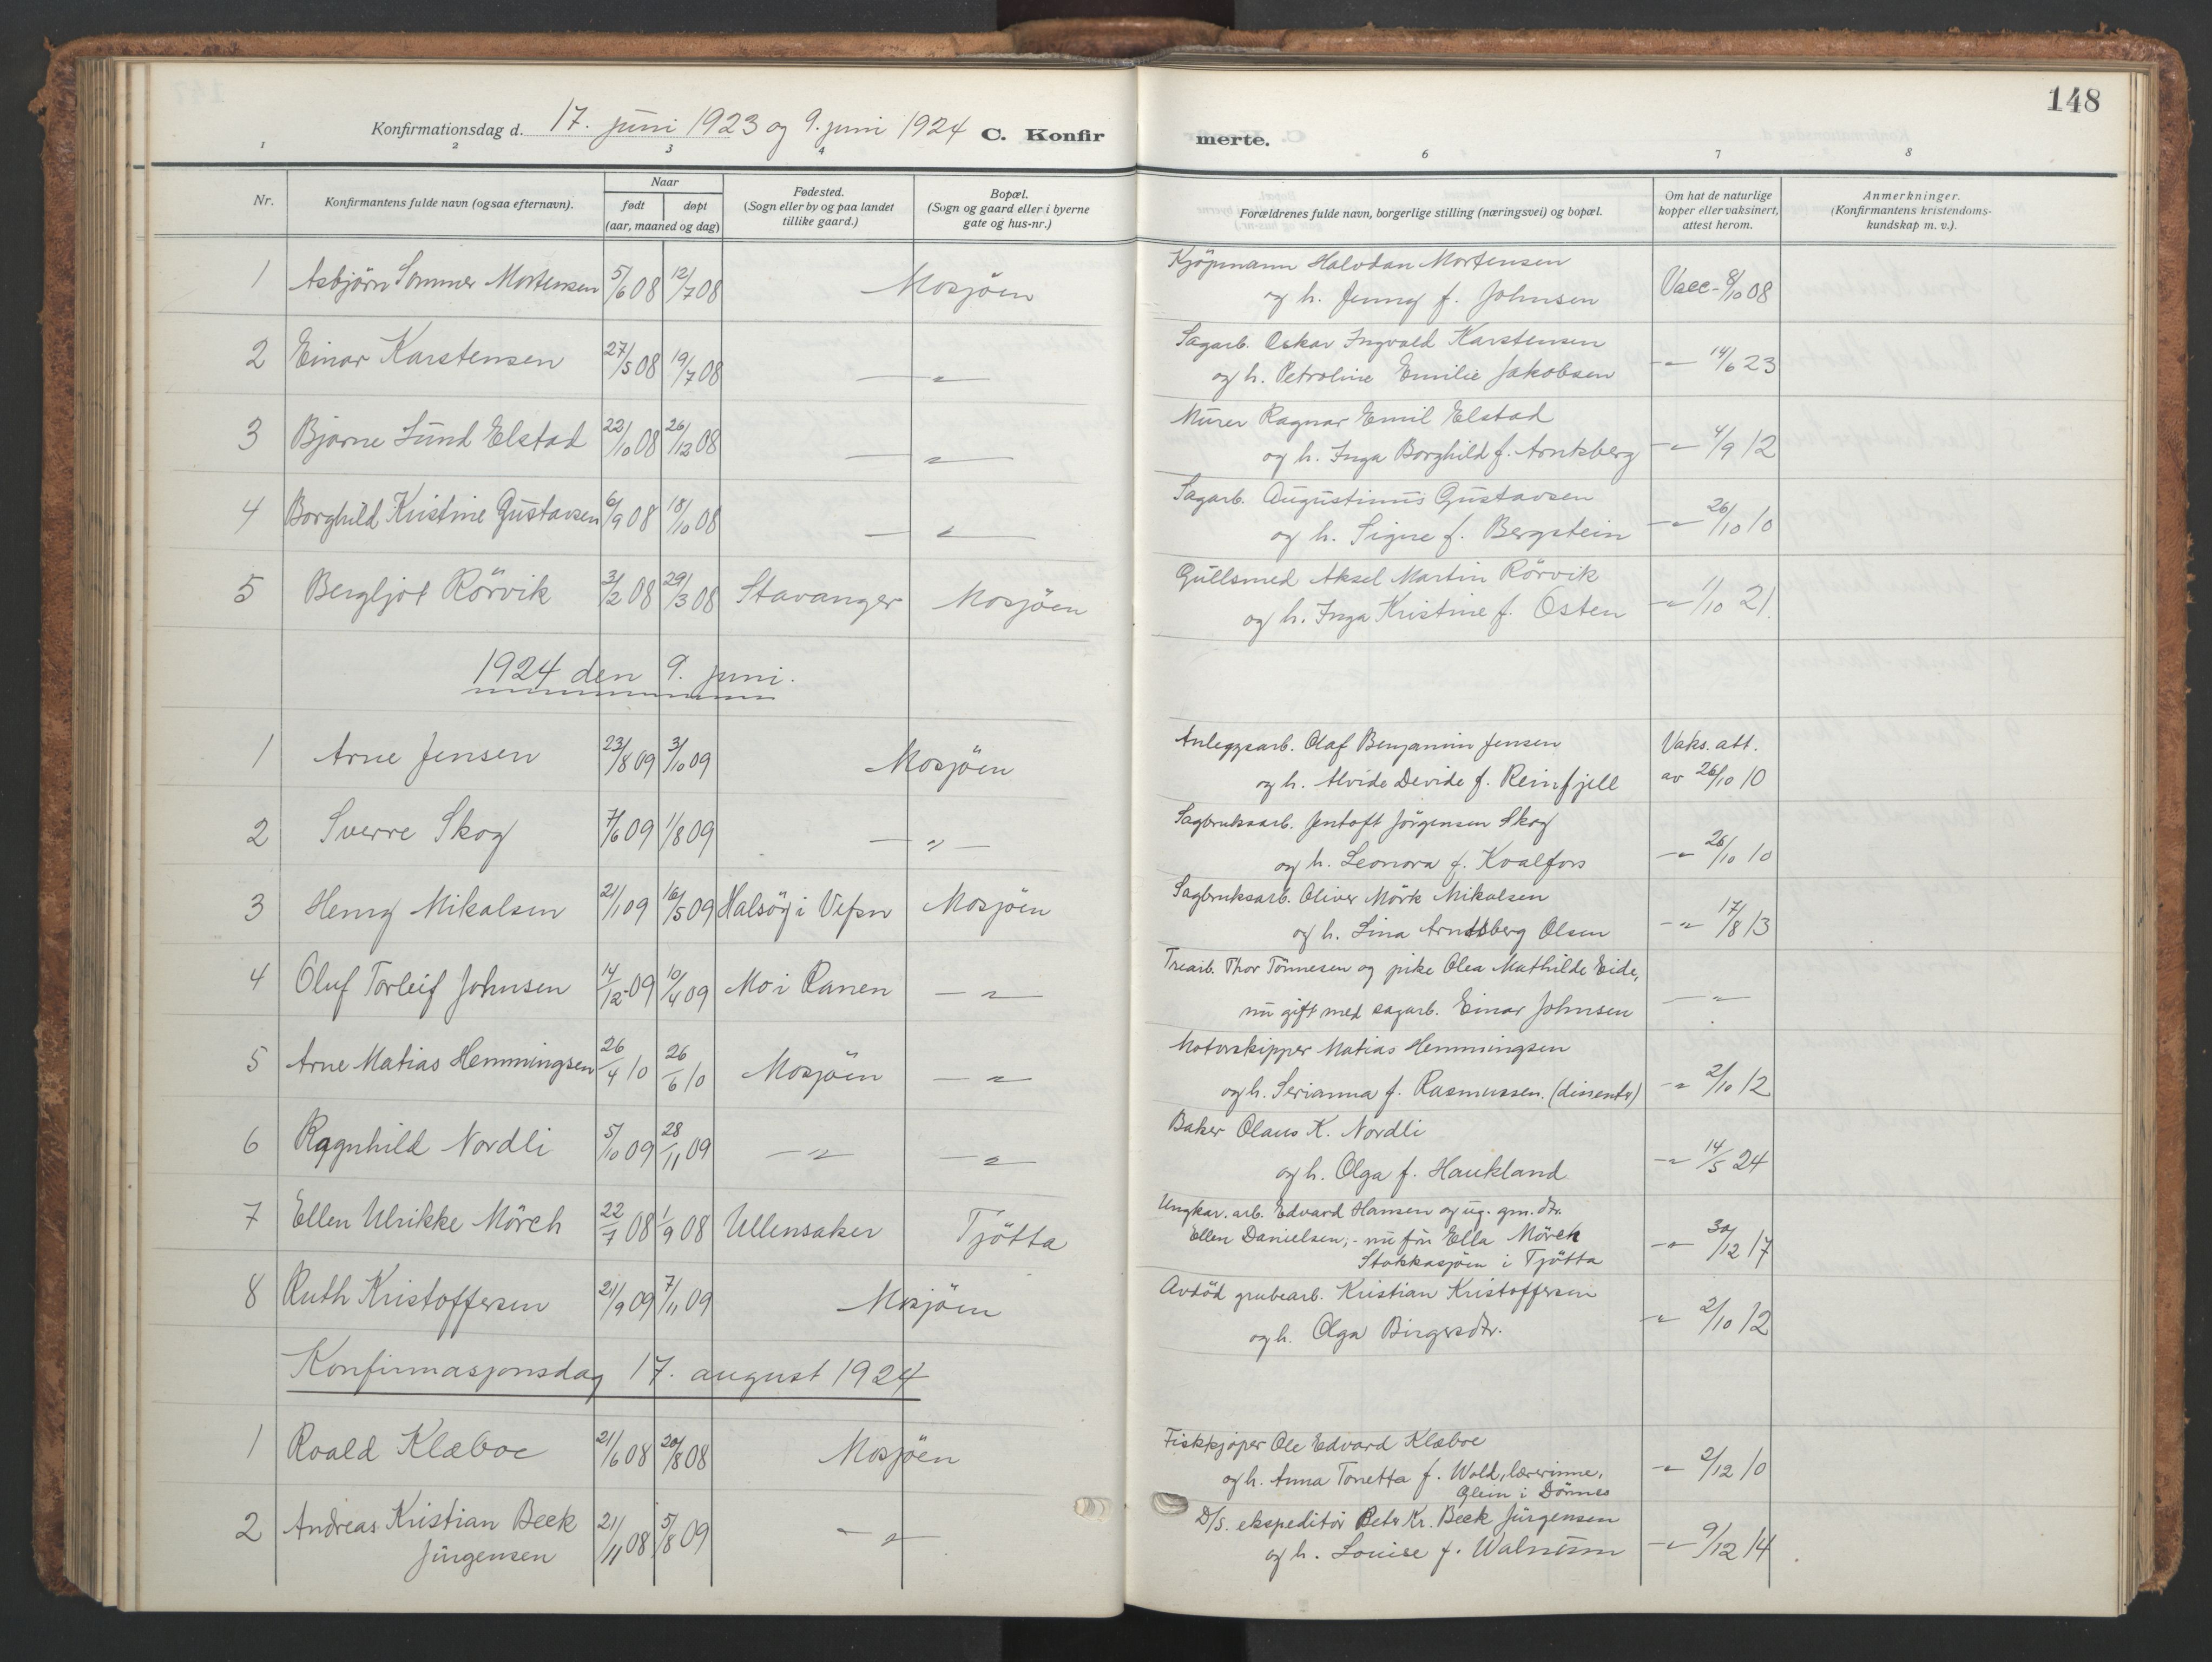 148
Konfirmationsdag d. 17. juni 1923 og 9. juni 1924 C. Konfir merte.
1 2 3 4 6 7 8
Nr. Konfirmantens fulde navn (ogsaa efternavn). Naar født døpt (aar, maaned og dag) Fødested. (Sogn eller by og paa landet tillike gaard.) Bopæl. (Sogn og gaard eller i byerne gate og hus-nr.) Forældrenes fulde navn, borgerlige stilling (næringsvei) og bopæl. Om hat de naturlige kopper eller vaksinert, attest herom. Anmerkninger. (Konfirmantens kristendoms-kundskap m. v.).
1 Asbjörn Sommer Mortensen 5/6 08 12/7 08 Mosjöen Kjöpmann Halvdan Mortensen
og h. Jenny f. Johnsen Vacc. 8/10 08
2 Einar Karstensen 27/5 08 19/7 08 — " — Sagarb. Oskar Ingvald Karstensen
og h. Petroline Emilie Jakobsen — " 14/6 23
3 Bjarne Lund Elstad 22/10 08 26/12 08 — " — Murer Ragnar Emil Elstad
og h. Inga Borghild f. Arntsberg — " 4/9 12
4 Borghild Kristine Gustavsen 6/9 08 18/10 08 — " — Sagarb. Augustinus Gustavsen
og h. Signe f. Bergstein — " 26/10 10
5 Bergljot Rörvik 3/2 08 29/3 08 Stavanger Mosjöen Gullsmed Aksel Martin Rörvik
og h. Inga Kristine f. Östen — " 1/10 21.
1924 den 9. juni.
1 Arne Jensen 23/8 09 3/10 09 Mosjöen Anleggsarb. Olaf Benjamin Jensen
og h. Alvide Devide f. Reinfjell Vaks. att. av 26/10 10
2 Sverre Skog 7/6 09 1/8 09 — " — Sagbruksarb. Jentoft Jörgensen Skog
og h. Leonora f. Kvalfors — " 26/10 10
3 Henry Mikalsen 21/1 09 16/5 09 Halsöy i Vefsn Mosjöen Sagbruksarb. Oliver Mörk Mikalsen
og h. Lina Arntsberg Olsen — " 17/8 13
4 Oluf Torleif Johnsen 14/12 09 10/4 09 Mo i Ranen — " Trearb. Thor Tönnesen og pike Olea Mathilde Eide,
nu gift med sagarb. Einar Johnsen — "
5 Arne Matias Hemmingsen 26/4 10 26/6 10 Mosjöen — " Motorskipper Matias Hemmingsen
og h. Serianna f. Rasmussen. (dissentr) — " 2/10 12
6 Ragnhild Nordli 5/10 09 28/11 09 — " — " Baker Olaus K. Nordli
og h. Olga f. Haukland — " 14/5 24
7 Ellen Ulrikke Mörch 22/7 08 1/9 08 Ullensaker Tjötta Ungkar. arb. Edvard Hansen og ug. gm. dtr.
Ellen Danielsen, - nu fru Ella Mörch
Stokkasjöen i Tjötta — " 30/12 17
8 Ruth Kristoffersen 21/9 09 7/11 09 Mosjöen Avdöd grubearb. Kristian Kristoffersen
og h. Olga Birgersdtr. — " 2/10 12
Konfirmasjonsdag 17. august 1924
1 Roald Klæboe 21/6 08 20/8 08 Mosjöen Fiskkjöper Ole Edvard Klæboe
og h. Anna Tonetta f. Wold, lærerinne,
Glein i Dönnes — " 2/12 10
2 Andreas Kristian Beck
Jürgensen 21/11 08 5/8 09 — " — D/S. ekspeditör Petr Kr. Beck Jürgensen
og h. Louise f. Walnum — " 9/12 14